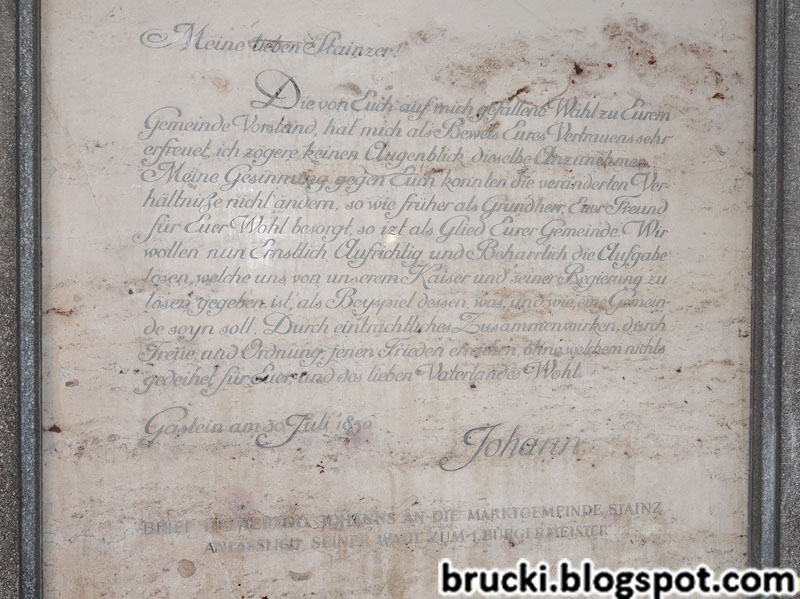 Meine lieben Stainzer!
Die von Euch auf mich gefallene Wahl zu Eurem
Gemeinde Vorstand, hat mich als Beweis Eures Vertrauens sehr
erfreuet, ich zögere keinen Augenblick dieselbe Anzunehmen.
Meine Gesinnung gegen Euch konnten die veränderten Ver-
hältnuße nicht ändern, so wie früher als Grundherr, Euer Freund
für Euer Wohl besorgt, so izt als Glied Eurer Gemeinde. Wir
wollen nun Ernstlich Aufrichtig und Beharrlich die Aufgabe
lösen, welche uns von unserem Kaiser und seiner Regierung zu
lösen gegeben ist, als Beyspiel dessen, was, und wie, eine Gemein-
de seyn soll. Durch einträchtliches Zusammenwirken, durch
Treue, und Ordnung, jenen Frieden erreichen, ohne welchem nichts
gedeihet für Euer, und des lieben Vaterlandes Wohl.
Gastein am 30 Juli 1850
Johann
BRIEF ERZHERZOG JOHANNS AN DIE MARKTGEMEINDE STAINZ
ANLÄSSLICH SEINER WAHL ZUM 1. BÜRGERMEISTER
brucki.blogspot.com